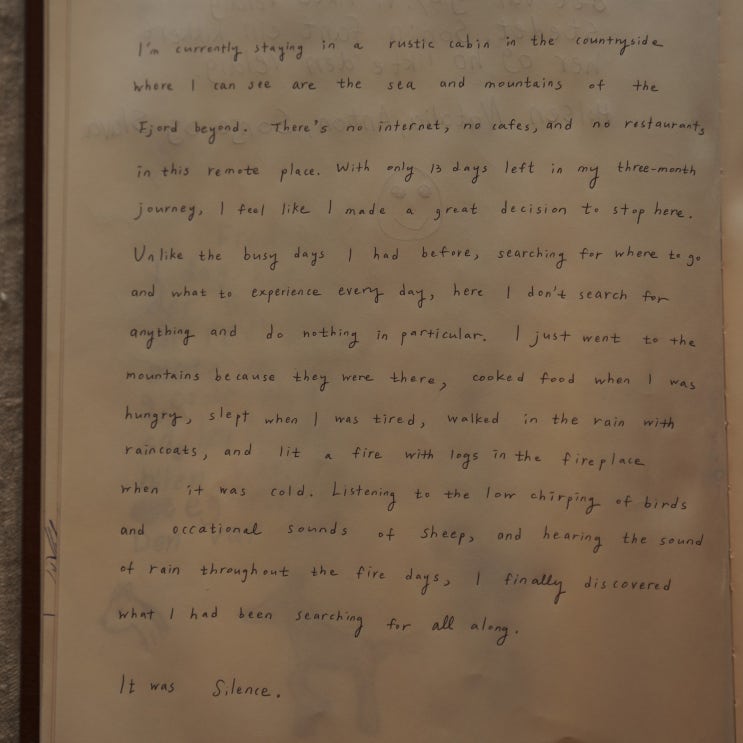 I'm currently staying in a rustic cabin in the countryside
where I can see are the sea and mountains of the
Fjord beyond. There's no internet, no cafes, and no restaurants
in this remote place. With only 13 days left in my three-month
journey, I feel like I made a great decision to stop here.
Unlike the busy days I had before, searching for where to go
and what to experience every day, here I don't search for
anything and do nothing in particular. I just went to the
mountains because they were there, cooked food when I was
hungry, slept when I was tired, walked in the rain with
raincoats, and lit a fire with logs in the fireplace
when it was cold. Listening to the low chirping of birds
and occational sounds of sheep, and hearing the sound
of rain throughout the fire days, I finally discovered
what I had been searching for all along.
It was Silence.